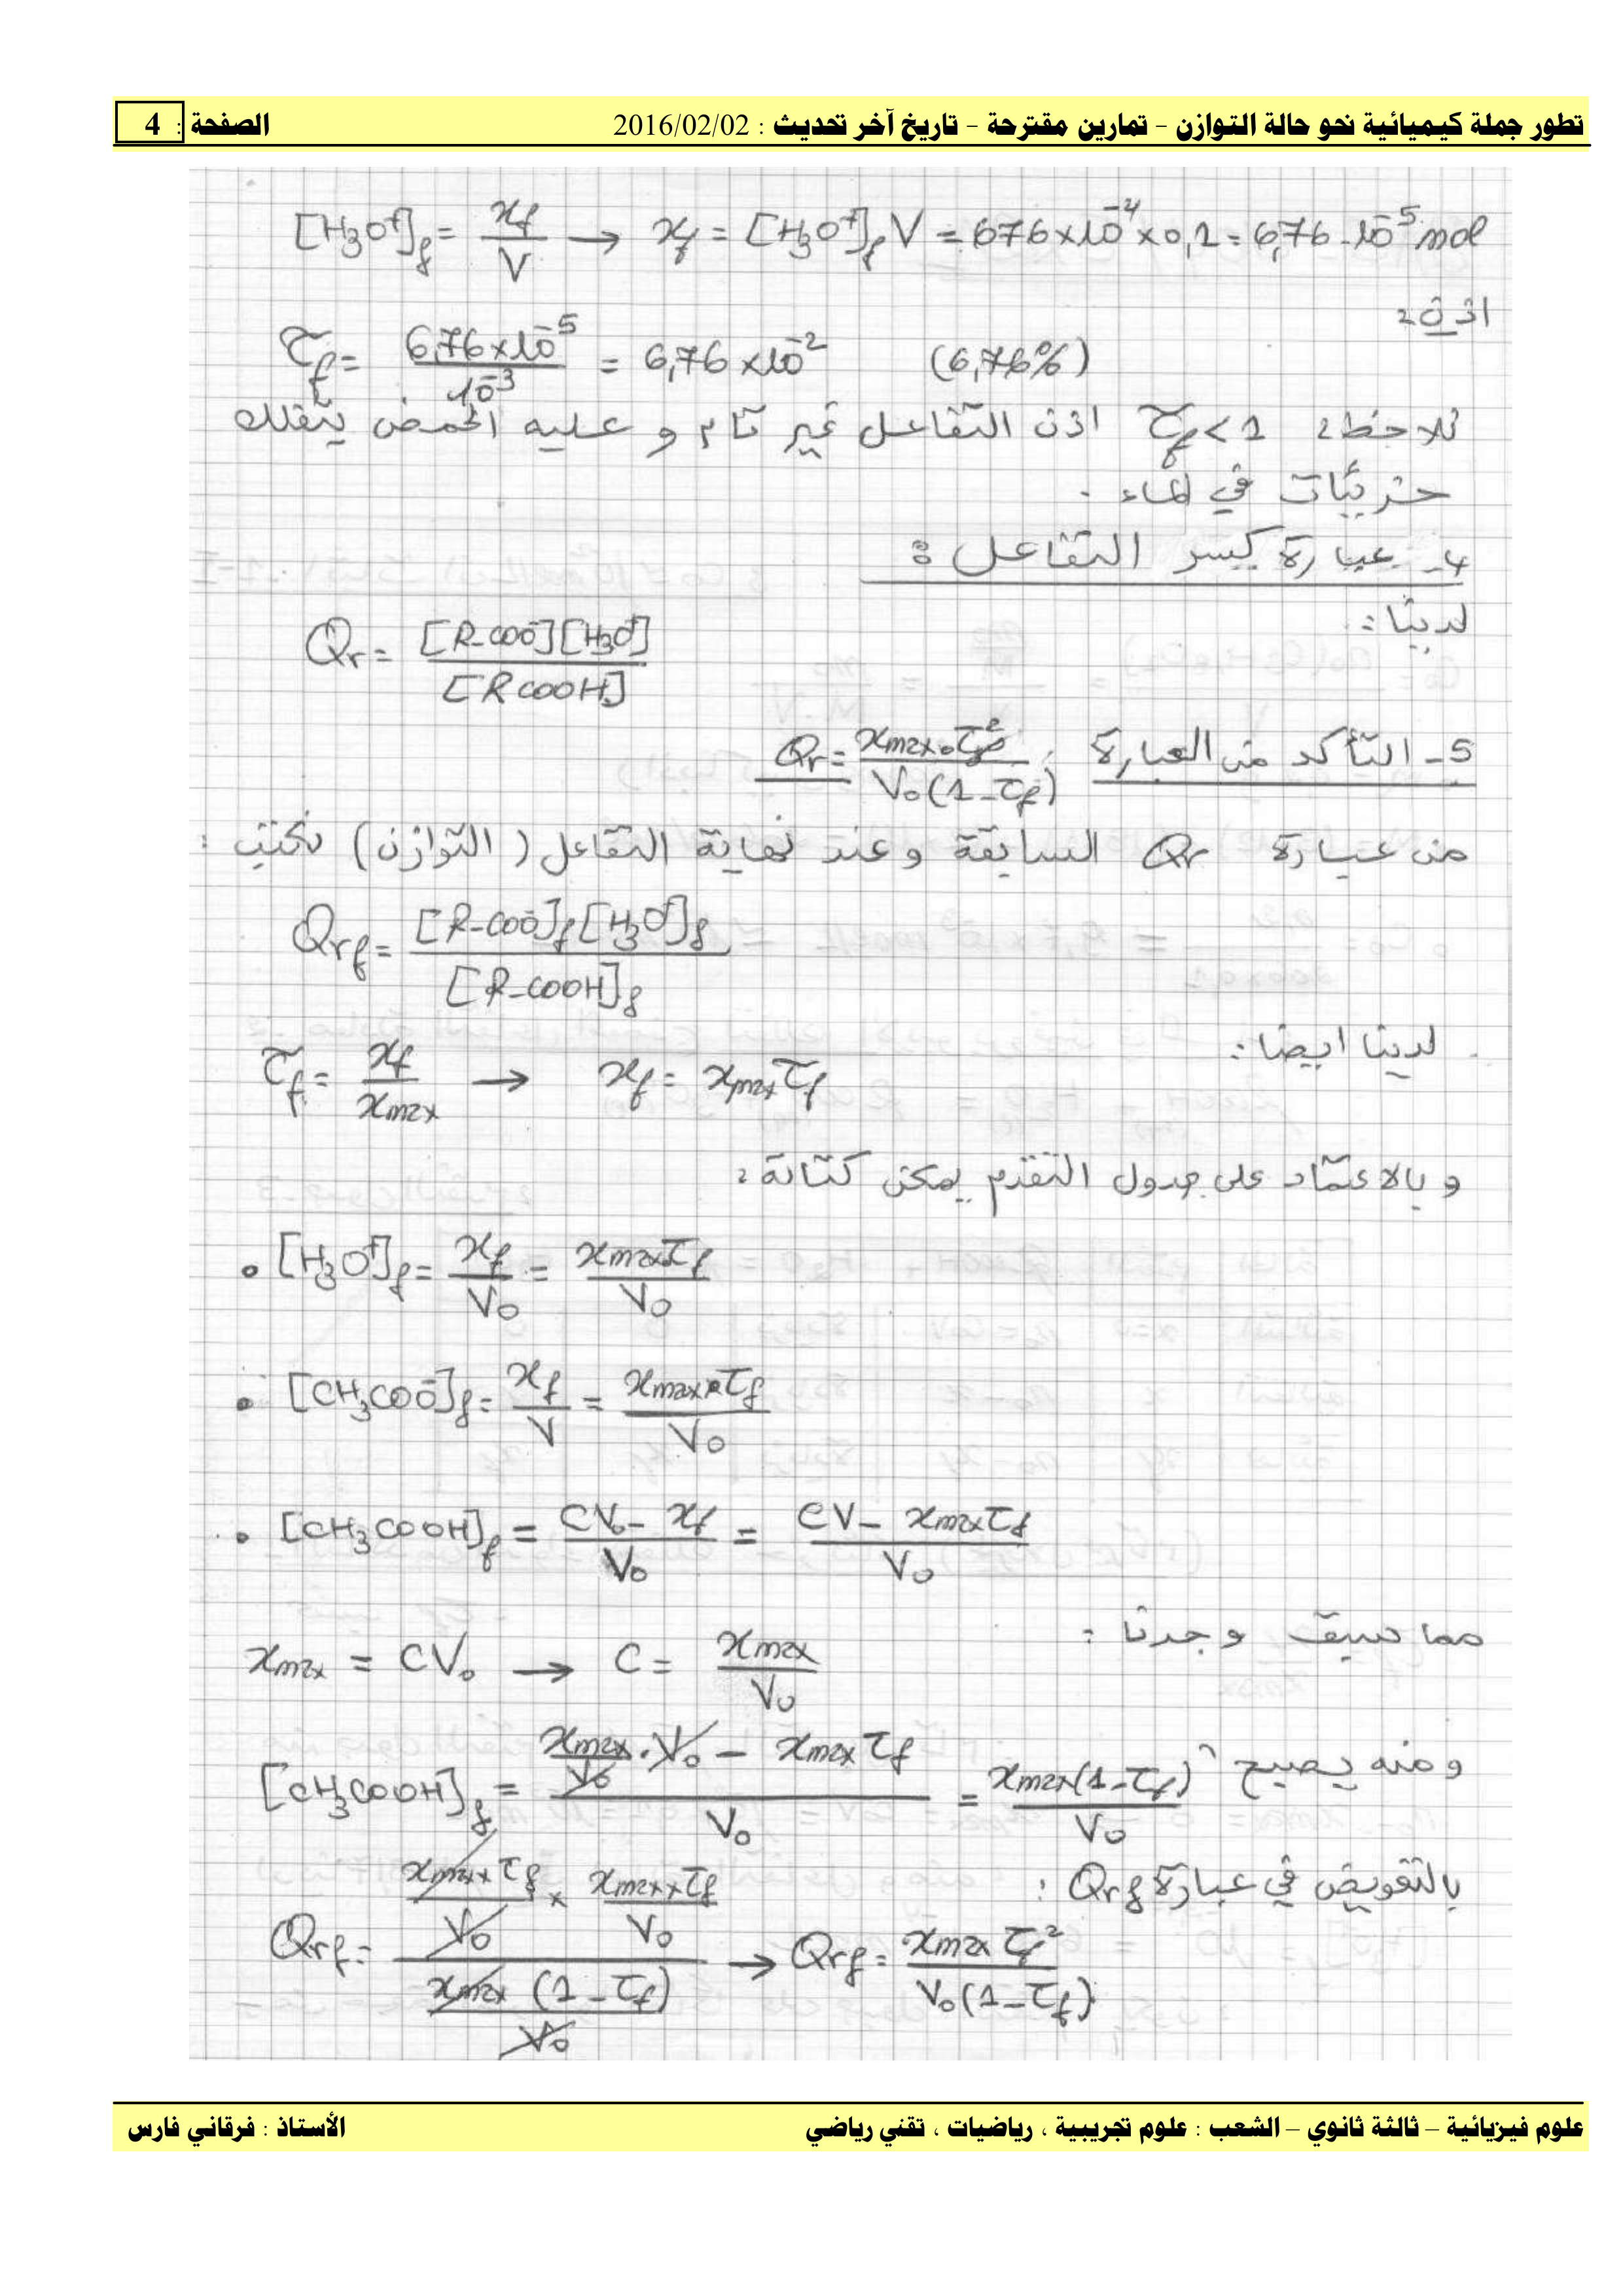 تطور جملة كيميائية نحو حالة التوازن – تمارين مقترحة – تاريخ آخر تحديث : 2016/02/02 الصفحة : 4
[H₃O⁺]f = xf / V → xf = [H₃O⁺]f V = 6,76×10⁻⁴ × 0,1 = 6,76 . 10⁻⁵ mol
اذن :
τf = 6,76×10⁻⁵ / 10⁻³ = 6,76×10⁻² (6,76%)
نلاحظ : τf < 1 اذن التفاعل غير تام و عليه الحمض يتفكك
جزئيات في الماء .
4- عبارة كسر التفاعل :
لدينا :
Qr = [R-COO⁻][H₃O⁺] / [RCOOH]
5- التأكد من العبارة : Qr = xmax . τf² / V₀(1-τf)
من عبارة Qr السابقة و عند نهاية التفاعل (التوازن) نكتب :
Qrf = [R-COO⁻]f [H₃O⁺]f / [R-COOH]f
لدينا ايضا :
τf = xf / xmax → xf = xmax τf
و بالاعتماد على جدول التقدم يمكن كتابة :
• [H₃O⁺]f = xf / V₀ = xmax τf / V₀
• [CH₃COO⁻]f = xf / V = xmax × τf / V₀
• [CH₃COOH]f = CV₀ - xf / V₀ = CV - xmax τf / V₀
مما سبق وجدنا :
xmax = CV₀ → C = xmax / V₀
ومنه يصبح
[CH₃COOH]f = (xmax / V₀ . V₀ - xmax τf) / V₀ = xmax(1-τf) / V₀
بالتعويض في عبارة Qrf :
Qrf = (xmax × τf / V₀ × xmax × τf / V₀) / (xmax (1-τf) / V₀) → Qrf = xmax τf² / V₀(1-τf)
علوم فيزيائية – ثالثة ثانوي – الشعب : علوم تجريبية ، رياضيات ، تقني رياضي الأستاذ : فرقاني فارس